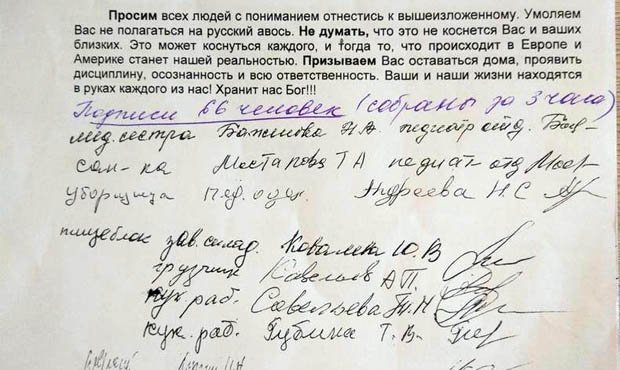 Просим всех людей с пониманием отнестись к вышеизложенному. Умоляем
Вас не полагаться на русский авось. Не думать, что это не коснется Вас и ваших
близких. Это может коснуться каждого, и тогда то, что происходит в Европе и
Америке станет нашей реальностью. Призываем Вас оставаться дома, проявить
дисциплину, осознанность и всю ответственность. Ваши и наши жизни находятся
в руках каждого из нас! Хранит нас Бог!!!
Подписи 66 человек (собраны за 3 часа)
мед. сестра Баженова Н.А. педиатр отд.
сан-ка Т А педиат отд
уборщица Пед. отд. Андреева Н С
пищеблок зав. склад. Ю. В
грузчик А П.
кух раб. Савельева Т. Н
кух. раб. Губина Т. В.